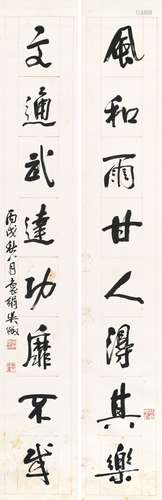 風和雨甘人得其樂
文通武達功靡不成
丙戌秋八月袁